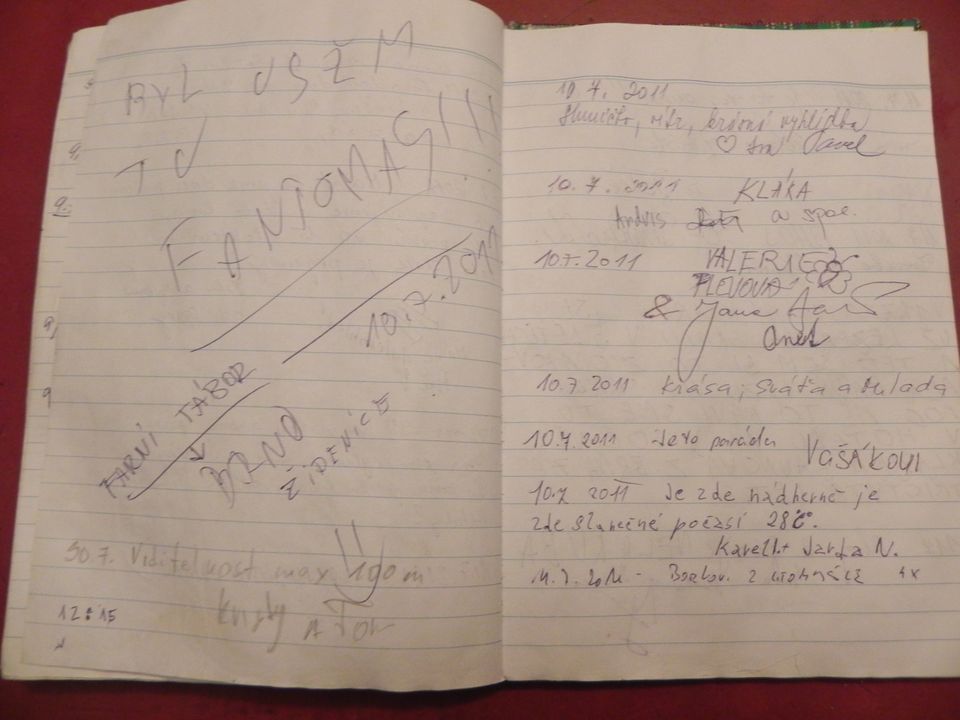 BYL USŽM
TU
FANTOMAS!!!
10.7.2011
FARNÍ TÁBOR
BRNO
ŽIDENICE
30.7. Viditelnost max 100 m
12:15
10 7. 2011
Sluníčko, vítr, krásná vyhlídka
♡ Iva Pavel
10. 7. 2011 KLÁRA
a spol.
10.7.2011 VALERIE
PLEVOVÁ
& Jana
Anet
10.7 2011 Krása, Sváťa a Mlada
10.7.2011 Je to paráda
VAŠÁKOVI
10.7 2011 Je zde nádherně je
zde slunečné počasí 28°C.
Karel + Jarda N.